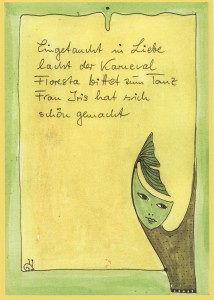 Eingetaucht in Liebe
lacht der Karneval
Floresta bittet zum Tanz
Frau Iris hat sich
schön gemacht